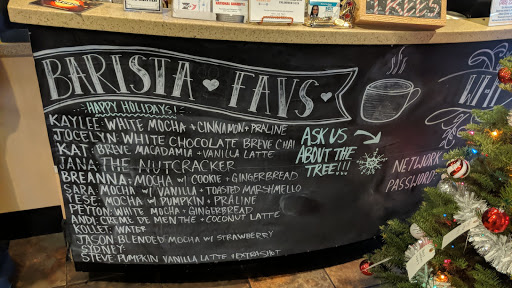 BARISTA FAVS
HAPPY HOLIDAYS!
KAYLEE: WHITE MOCHA + CINNAMON + PRALINE
JOCELYN WHITE CHOCOLATE BREVE CHAI
KAT: BREVE MACADAMIA + VANILLA LATTE
JANA: THE NUTCRACKER
BREANNA: MOCHA w/ COOKIE + GINGERBREAD
SARA: MOCHA w/ VANILLA + TOASTED MARSHMELLO
YESE: MOCHA w/ PUMPKIN + PRALINE
PEYTON: WHITE MOCHA + GINGERBREAD
ANDI: CREME DE MENTHE + COCONUT LATTE
KOLLET: WATER
JASON BLENDED MOCHA w/ STRAWBERRY
SIDNEY:
STEVE: PUMPKIN VANILLA LATTE + EXTRA SHOT
ASK US
ABOUT THE
TREE!!!
WI-FI
NETWORK
PASSWORD